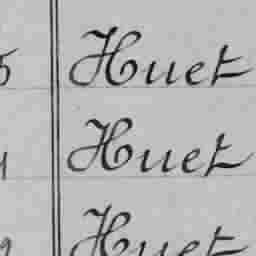 5 Huet
Huet
Huet